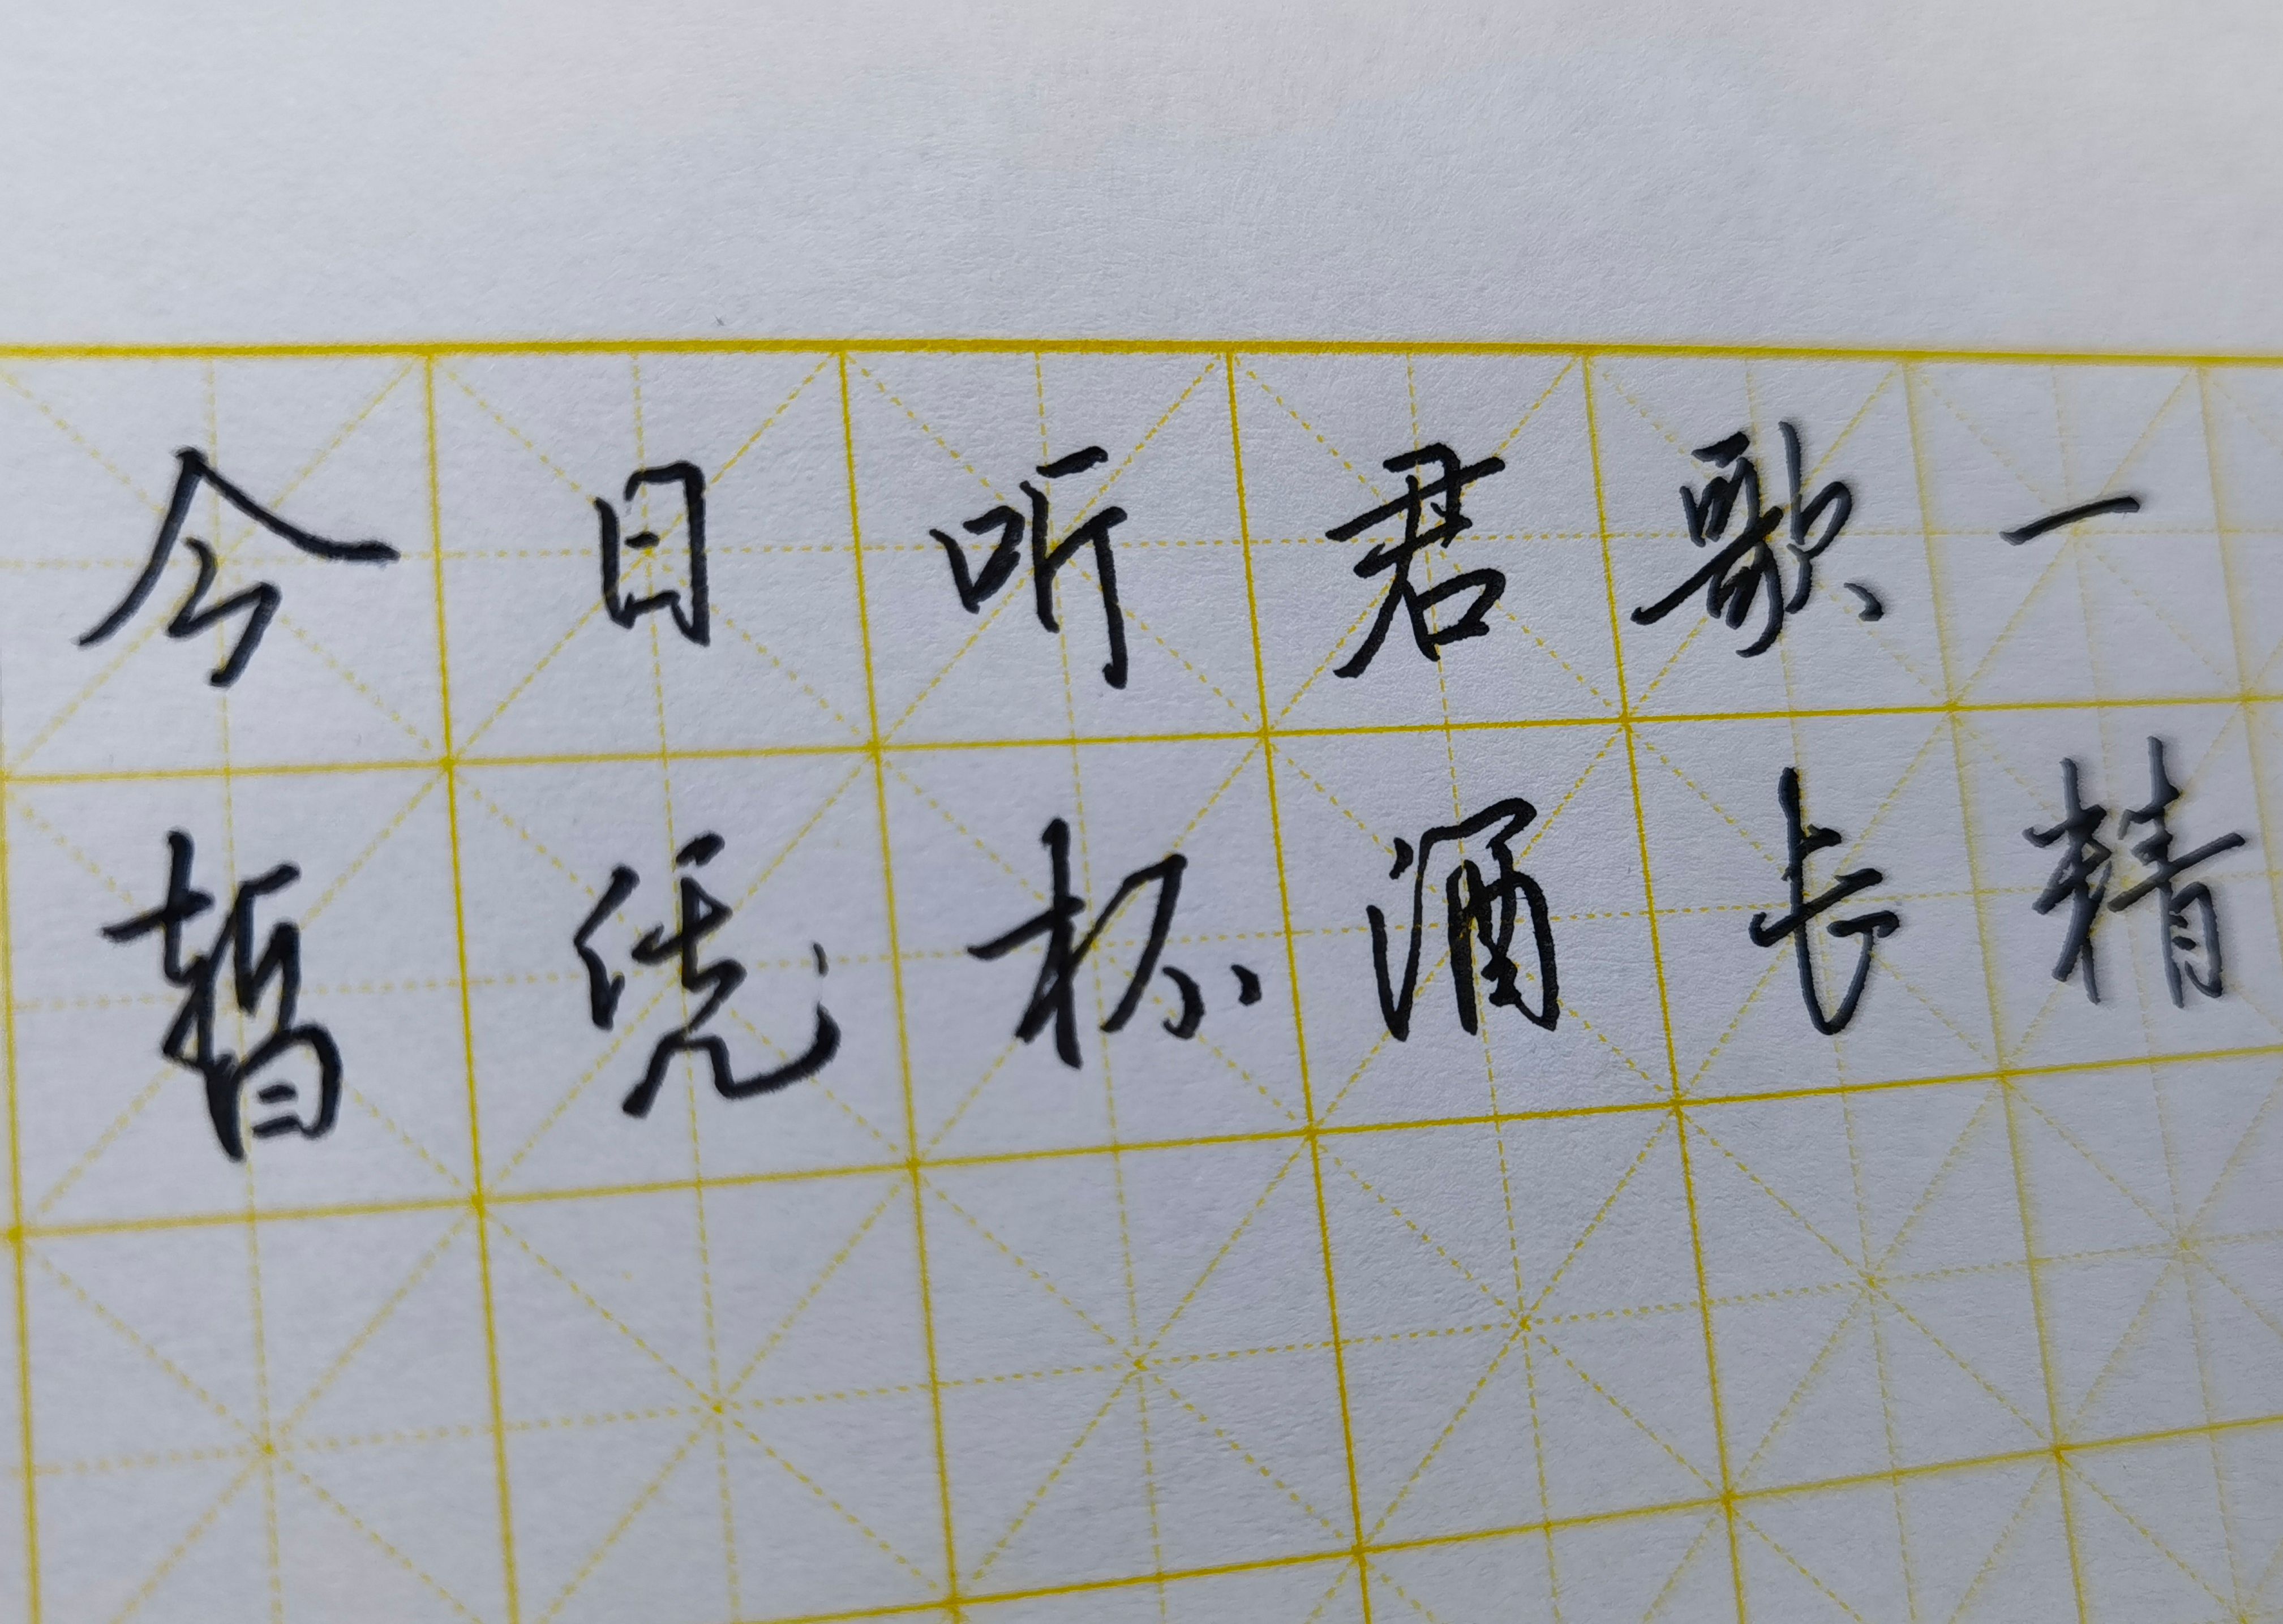 今日听君歌一
暂凭杯酒长精